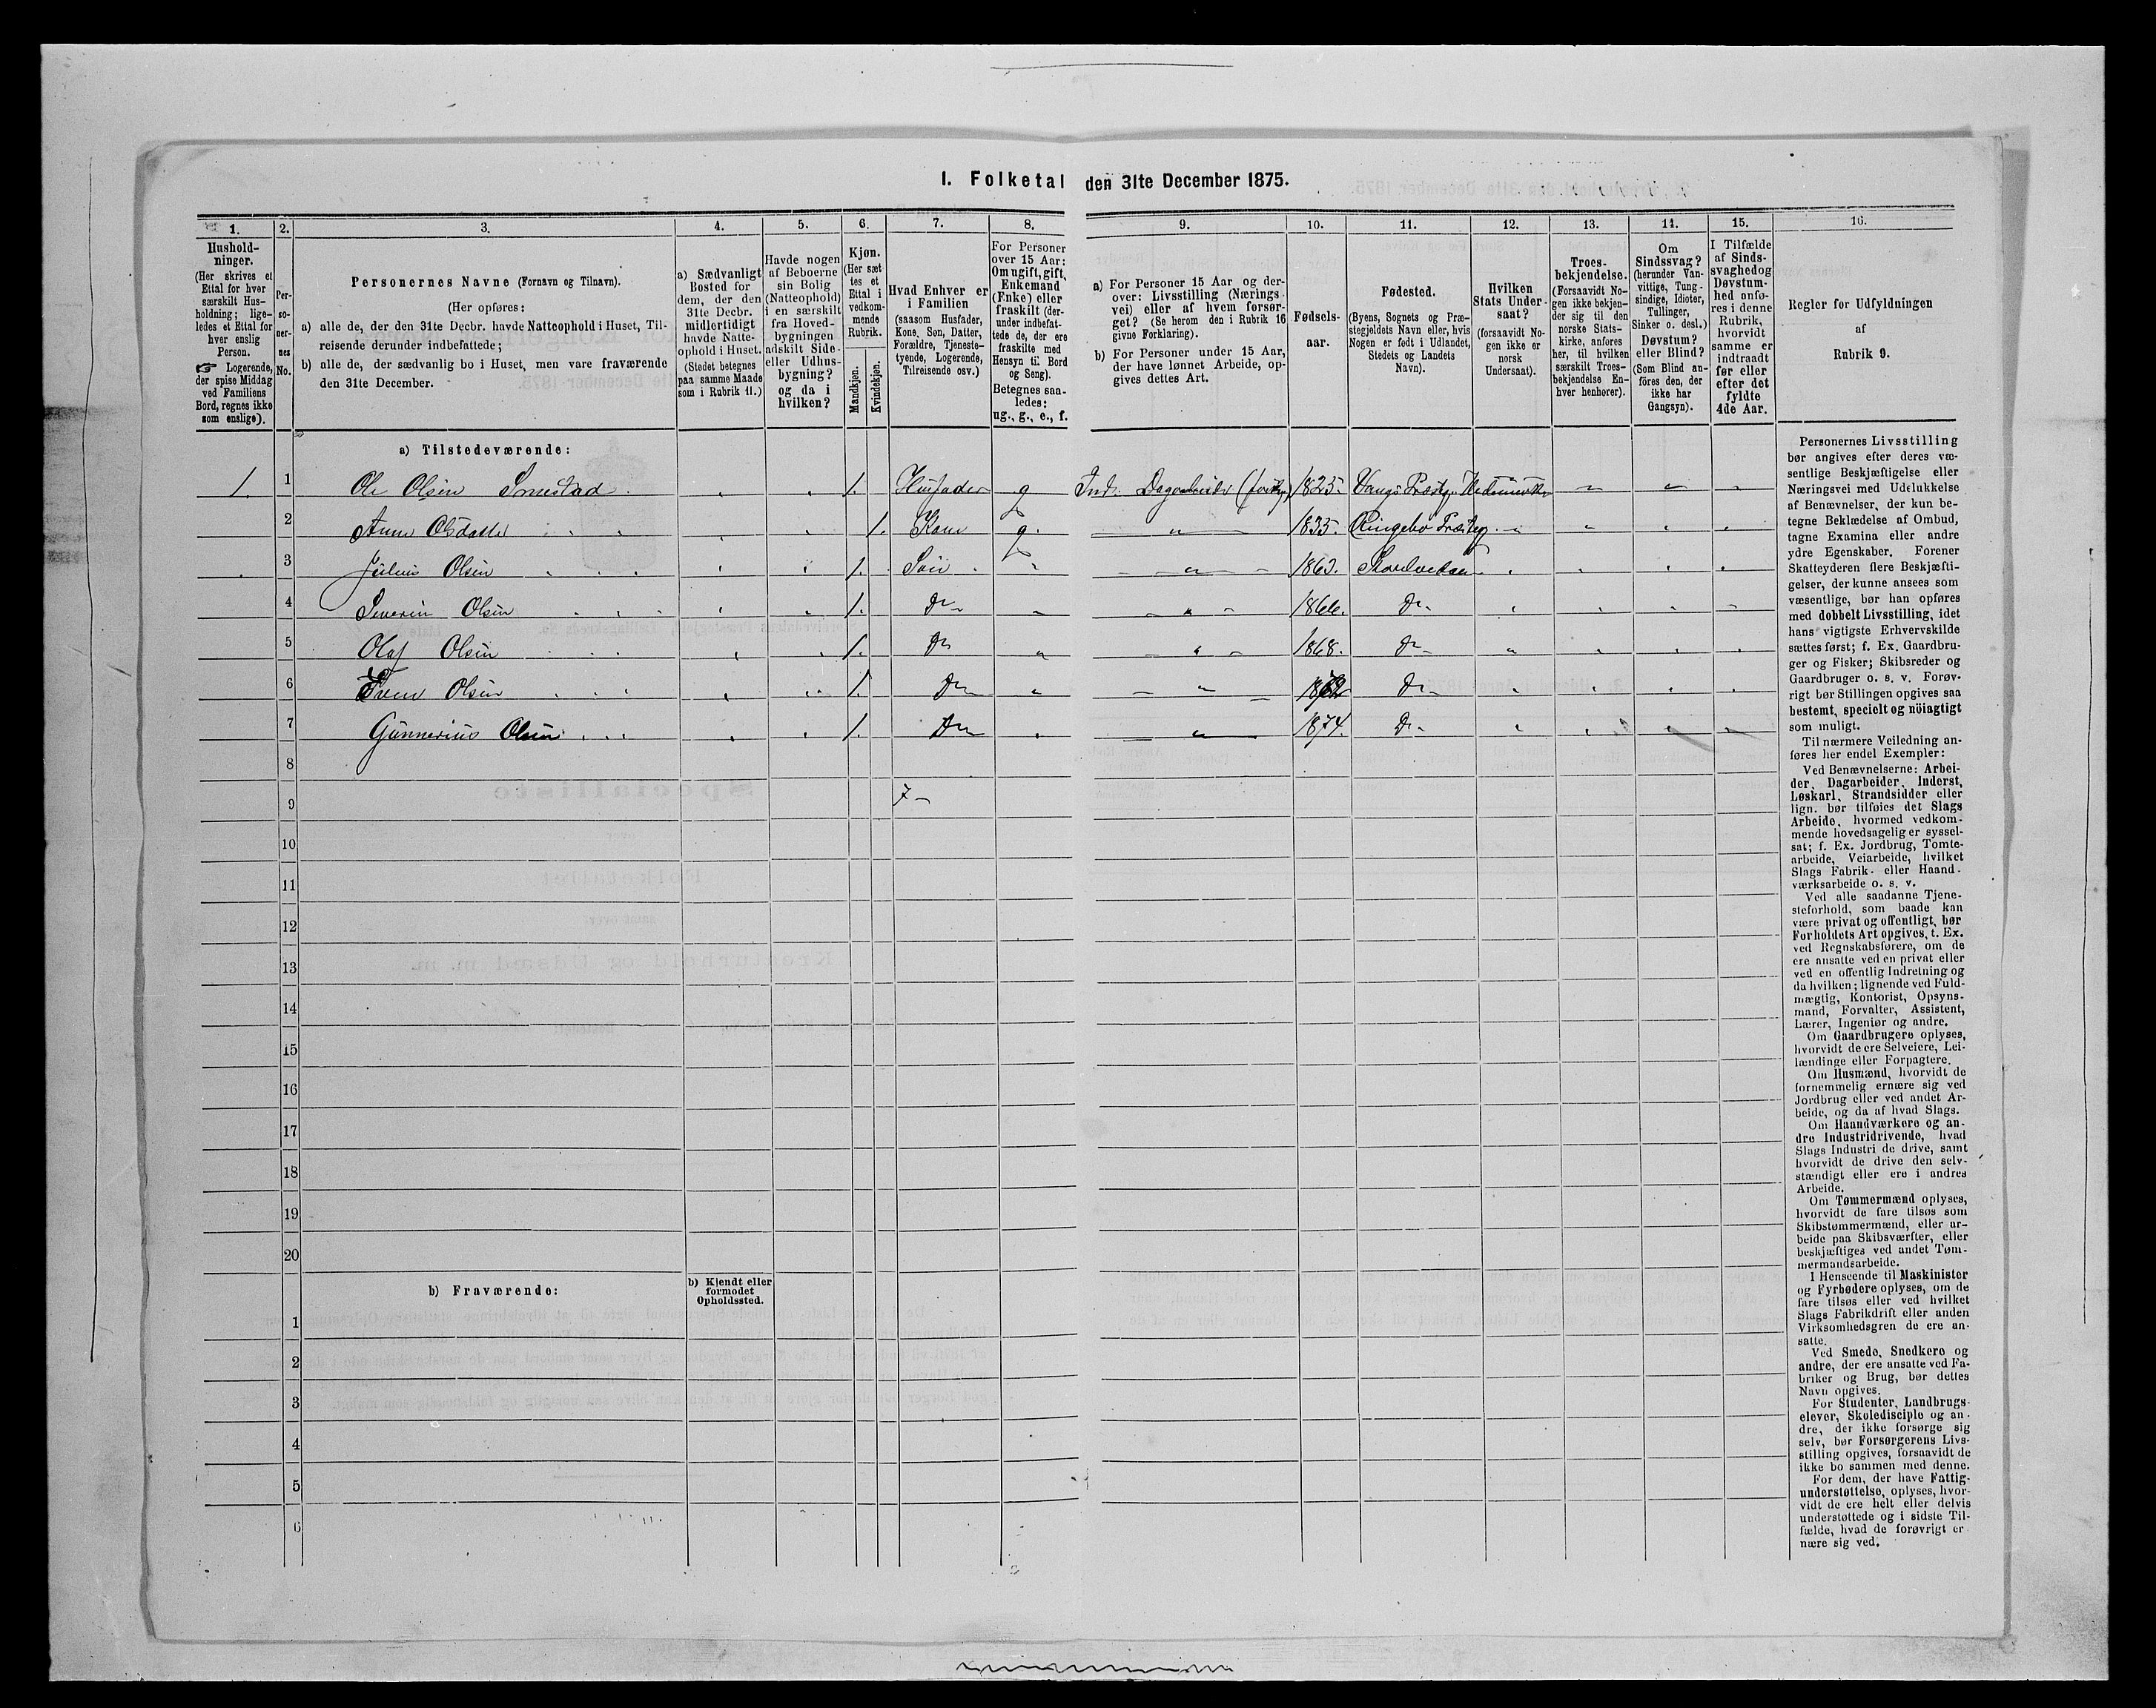 I. Folketal den 31te December 1875.
1.
Hushold-
ninger.
(Her skrives et
Ettal for hver
særskilt Hus-
holdning; lige-
ledes et Ettal for
hver enslig
Person.
☞ Logerende,
der spise Middag
ved Familiens
Bord, regnes ikke
som enslige).
2.
Per-
so-
ner-
nes
No.
3.
Personernes Navne (Fornavn og Tilnavn).
(Her opføres:
a) alle de, der den 31te Decbr. havde Natteophold i Huset, Til-
reisende derunder indbefattede;
b) alle de, der sædvanlig bo i Huset, men vare fraværende
den 31te December.
4.
a) Sædvanligt
Bosted for
dem, der den
31te Decbr.
midlertidigt
havde Natte-
ophold i Huset.
(Stedet betegnes
paa samme Maade
som i Rubrik 11.)
5.
Havde nogen
af Beboerne
sin Bolig
(Natteophold)
i en særskilt
fra Hoved-
bygningen
adskilt Side-
eller Udhus-
bygning?
og da i
hvilken?
6.
Kjøn.
(Her sæt
tes et
Ettal i
vedkom-
mende
Rubrik.
Mandkjøn.
Kvindekjøn.
7.
Hvad Enhver er
i Familien
(saasom Husfader,
Kone, Søn, Datter,
Forældre, Tjeneste-
tyende, Logerende,
Tilreisende osv.)
8.
For Personer
over 15 Aar:
Om ugift, gift,
Enkemand
(Enke) eller
fraskilt (der-
under indbefat-
tede de, der ere
fraskilte med
Hensyn til Bord
og Seng).
Betegnes saa-
ledes:
ug., g., e., f.
9.
a) For Personer 15 Aar og der-
over: Livsstilling (Nærings-
vei) eller af hvem forsør-
get? (Se herom den i Rubrik 16
givne Forklaring).
b) For Personer under 15 Aar,
der have lønnet Arbeide, op-
gives dettes Art.
10.
Fødsels-
aar.
11.
Fødested.
(Byens, Sognets og Præ-
stegjeldets Navn eller, hvis
Nogen er født i Udlandet,
Stedets og Landets
Navn).
12.
Hvilken
Stats Under-
saat?
(forsaavidt No-
gen ikke er
norsk
Undersaat).
13.
Troes-
bekjendelse.
(Forsaavidt No-
gen ikke bekjen-
der sig til den
norske Stats-
kirke, anføres
her, til hvilken
særskilt Troes-
bekjendelse En-
hver henhører).
14.
Om
Sindssvag?
(herunder Van-
vittige, Tung-
sindige, Idioter,
Tullinger,
Sinker o. desl.)
Døvstum?
eller Blind?
(Som Blind an-
føres den, der
ikke har
Gangsyn).
15.
I Tilfælde
af Sinds-
svaghed og
Døvstum-
hed anfø-
res i denne
Rubrik,
hvorvidt
samme er
indtraadt
før eller
efter det
fyldte
4de Aar.
16.
Regler for Udfyldningen
af
Rubrik 9.
a) Tilstedeværende:
1. 1 Ole Olsen Smestad 1. Husfader g Ind. Dagarbeider 1825. Vangs Præstg. Hedemarken
2 Anne Olsdatter 1. Kone g. 1835. Ringebo Præsteg.
3 Julius Olsen 1. Søn 1863.
4 Severin Olsen 1. Do 1866. Do
5 Olaf Olsen 1. Do 1868. Do
6 Sven Olsen 1. Do Do
7 Gunnerius Olsen 1. Do 1874. Do
8
9 7
10
11
12
13
14
15
16
17
18
19
20
b) Fraværende:
b) Kjendt eller
formodet
Opholdssted.
1
2
3
4
5
6
Personernes Livsstilling
bør angives efter deres væ-
sentlige Beskjæftigelse eller
Næringsvei med Udelukkelse
af Benævnelser, der kun be-
tegne Beklædelse af Ombud,
tagne Examina eller andre
ydre Egenskaber. Forener
Skatteyderen flere Beskjæfti-
gelser, der kunne ansees som
væsentlige, bør han opføres
med dobbelt Livsstilling, idet
hans vigtigste Erhvervskilde
sættes først; f. Ex. Gaardbru-
ger og Fisker; Skibsreder og
Gaardbruger o. s. v. Forøv-
rigt bør Stillingen opgives saa
bestemt, specielt og nöiagtigt
som muligt.
Til nærmere Veiledning an-
føres her endel Exempler:
Ved Benævnelserne: Arbei-
der, Dagarbeider, Inderst,
Løskarl, Strandsidder eller
lign. bør tilføies det Slags
Arbeide, hvormed vedkom-
mende hovedsagelig er syssel-
sat; f. Ex. Jordbrug, Tomte-
arbeide, Veiarbeide, hvilket
Slags Fabrik- eller Haand-
værksarbeide o. s. v.
Ved alle saadanne Tjene-
steforhold, som baade kan
være privat og offentligt, bør
Forholdets Art opgives, t. Ex.
ved Regnskabsførere, om de
ere ansatte ved en privat eller
ved en offentlig Indretning og
da hvilken; lignende ved Fuld-
mægtig, Kontorist, Opsyns-
mand, Forvalter, Assistent,
Lærer, Ingeniør og andre.
Om Gaardbrugere oplyses,
hvorvidt de ere Selveiere, Lei-
lændinge eller Forpagtere.
Om Husmænd, hvorvidt de
fornemmelig ernære sig ved
Jordbrug eller ved andet Ar-
beide, og da af hvad Slags.
Om Haandværkere og an-
dre Industridrivende, hvad
Slags Industri de drive, samt
hvorvidt de drive den selv-
stændigt eller ere i andres
Arbeide.
Om Tømmermænd oplyses,
hvorvidt de fare tilsøs som
Skibstømmermænd, eller ar-
beide paa Skibsværfter, eller
beskjæftiges ved andet Tøm-
mermandsarbeide.
I Henseende til Maskinister
og Fyrbødere oplyses, om de
fare tilsøs eller ved hvilket
Slags Fabrikdrift eller anden
Virksomhedsgren de ere an-
satte.
Ved Smede, Snedkere og
andre, der ere ansatte ved Fa-
briker og Brug, bør dettes
Navn opgives.
For Studenter, Landbrugs-
elever, Skoledisciple og an-
dre, der ikke forsørge sig
selv, bør Forsørgerens Livs-
stilling opgives, forsaavidt de
ikke bo sammen med denne.
For dem, der have Fattig-
understøttelse, oplyses, hvor-
vidt de ere helt eller delvis
understøttede og i sidste Til-
fælde, hvad de forøvrigt er-
nære sig ved.